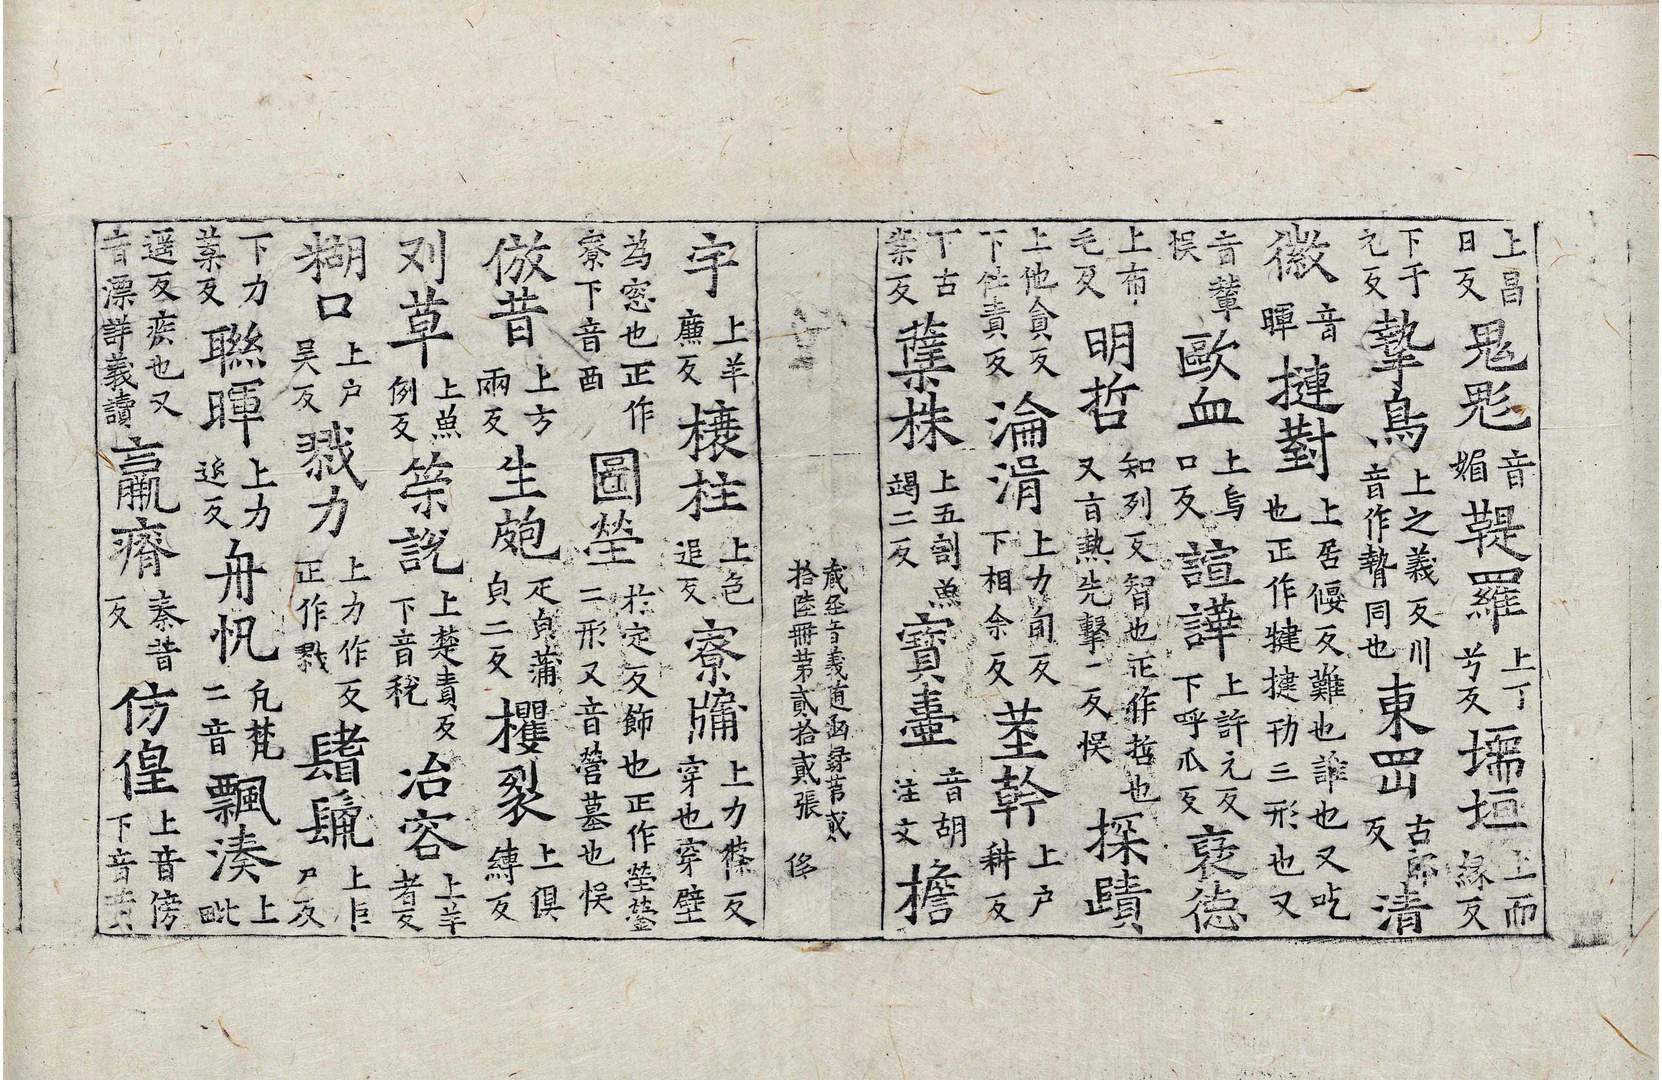 上昌日反鬽鬽音媚鞮羅上丁兮反堧垣上而緣反
下于元反鷙鳥上之義反川音作贄同也東罡古郎反清
徽音暉揵對上居偃反難也詐也又吃也正作犍揵刊三形也又
音輦悮歐血上烏口反諠譁上許元反下呼瓜反裦德
上布毛反明哲知列反智也正作哲也又音熱先擊二反悮探賾
上他貪反下仕責反淪湑上力旬反下相余反莖幹上户耕反
丁古業反蘖株上五割魚竭二反寶壷音胡注文檐
藏巠音義随函录苐贰拾陸冊第貳拾貳張 侈
宇上羊廉反榱柱上色追反寮牖上力條反穿也穿壁
為窓也正作寮下音酉圖瑩於定反飾也正作瑩鎣二形又音營墓也悮
倣昔上方兩反生皰疋皃蒲皃二反攫裂上俱縛反
刈草上魚例反筞説上楚責反下音税冶容上羊者反
糊口上户吴反戮力上力作反正作戮鬐鬣上巨尸反
下力葉反聯暉上力延反舟帆凡梵二音飄湊上毗
遥反疾也又音漂詳義讀羸瘠秦昔反仿偟上音傍下音黄